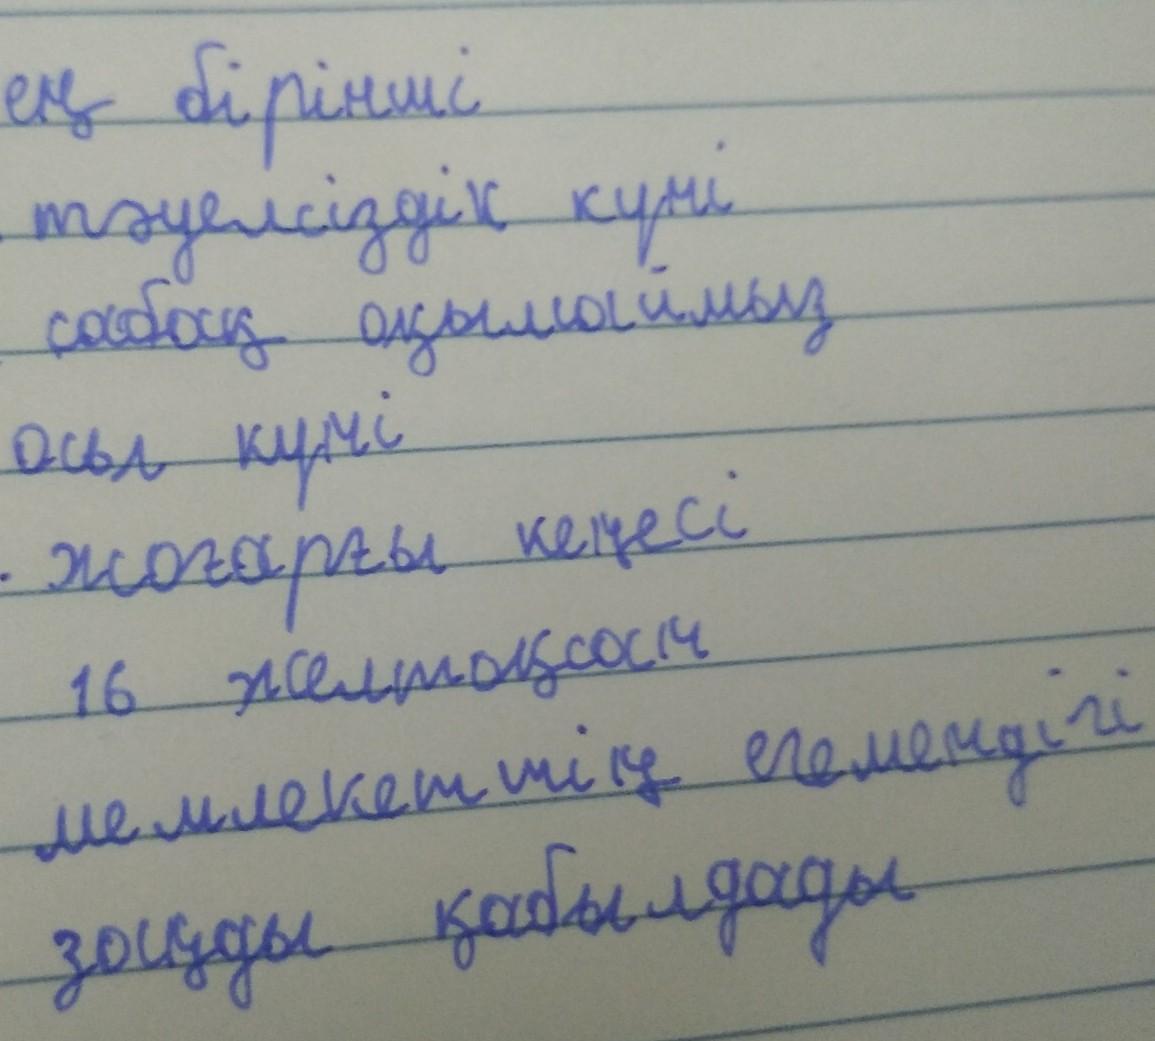 ең бірінші
. тәуелсіздік күні
. сабақ оқылмаймыз
осы күні
. жоғарғы кеңесі
16 желтоқсан
мемлекеттің егемендігі
заңды қабылдады